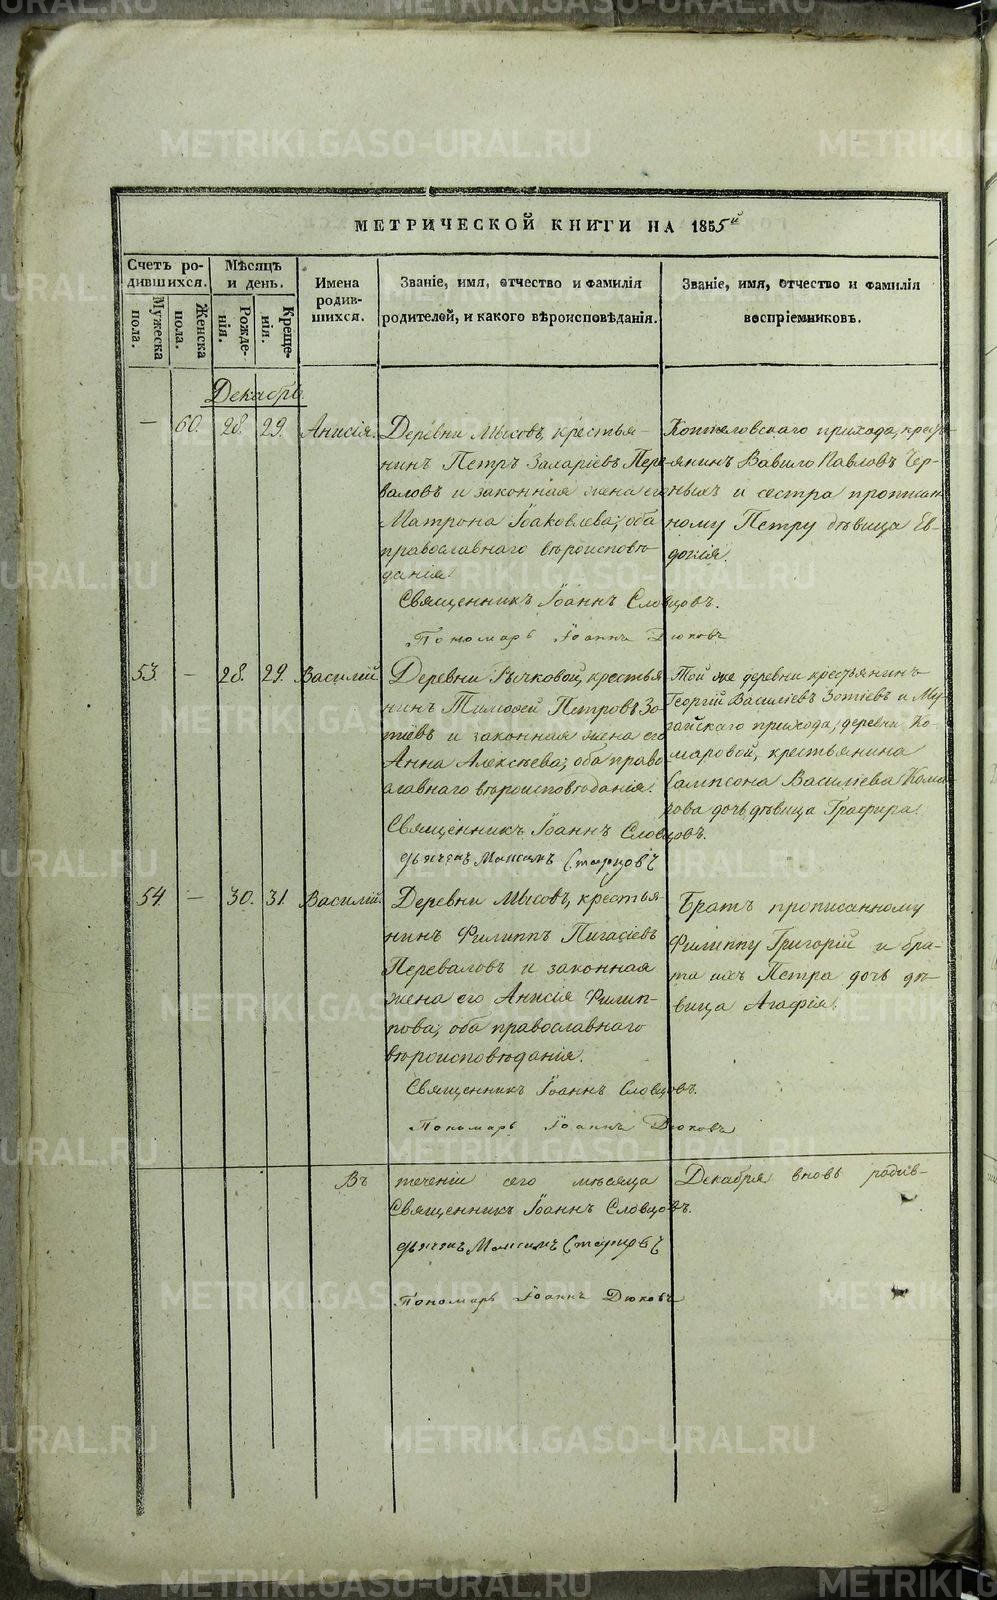 МЕТРИЧЕСКОЙ КНИГИ НА 1855й
Счетъ ро-
дившихся.
Мужеска
пола.
Женска
пола.
Мѣсяцъ
и день.
Рожде-
нія.
Креще-
нія.
Имена
родив-
шихся.
Званіе, имя, отчество и фамилія
родителей, и какого вѣроисповѣданія.
Званіе, имя, отчество и фамилія
воспріемниковъ.
Декабрь
— 60. 28. 29. Анисія.
Деревни Мысовъ, крестья-
нинъ Петръ Захаріевъ Пере-
валовъ и законная жена его
Матрона Іоаковлева; оба
православнаго вѣроисповѣ-
данія.
Священникъ Іоаннъ Словцовъ.
Пономарь Іоаннъ Дюковъ
прихода, крестья-
янинъ Вавило Павловъ Чер-
ныхъ и сестра прописан-
ному Петру дѣвица Ев-
докія.
53. — 28. 29. Василій.
Деревни Бычковой, крестья
нинъ Тимофей Петровъ Зо-
тіевъ и законная жена его
Анна Алексѣева; оба право
славнаго вѣроисповѣданія.
Священникъ Іоаннъ Словцовъ.
дьячекъ Максимъ Старцовъ
Той же деревни крестьянинъ
Георгій Василіевъ Зотіевъ и Му-
гайскаго прихода, деревни Ко-
маровой, крестьянина
Сампсона Василіева Кома-
рова дочь дѣвица Графира.
54. — 30. 31. Василій.
Деревни Мысовъ, крестья-
нинъ Филиппъ Пигасіевъ
Переваловъ и законная
жена его Анисія Филип-
пова; оба православнаго
вѣроисповѣданія.
Священникъ Іоаннъ Словцовъ.
Пономарь Іоаннъ Дюковъ
Братъ прописанному
Филиппу Григорій и бра-
та ихъ Петра дочь дѣ-
вица Агафія.
Въ теченіи сего мѣсяца Декабря вновь родив-
Священникъ Іоаннъ Словцовъ.
дьячекъ Максимъ Старцовъ
Пономарь Іоаннъ Дюковъ
METRIKI.GASO-URAL.RU